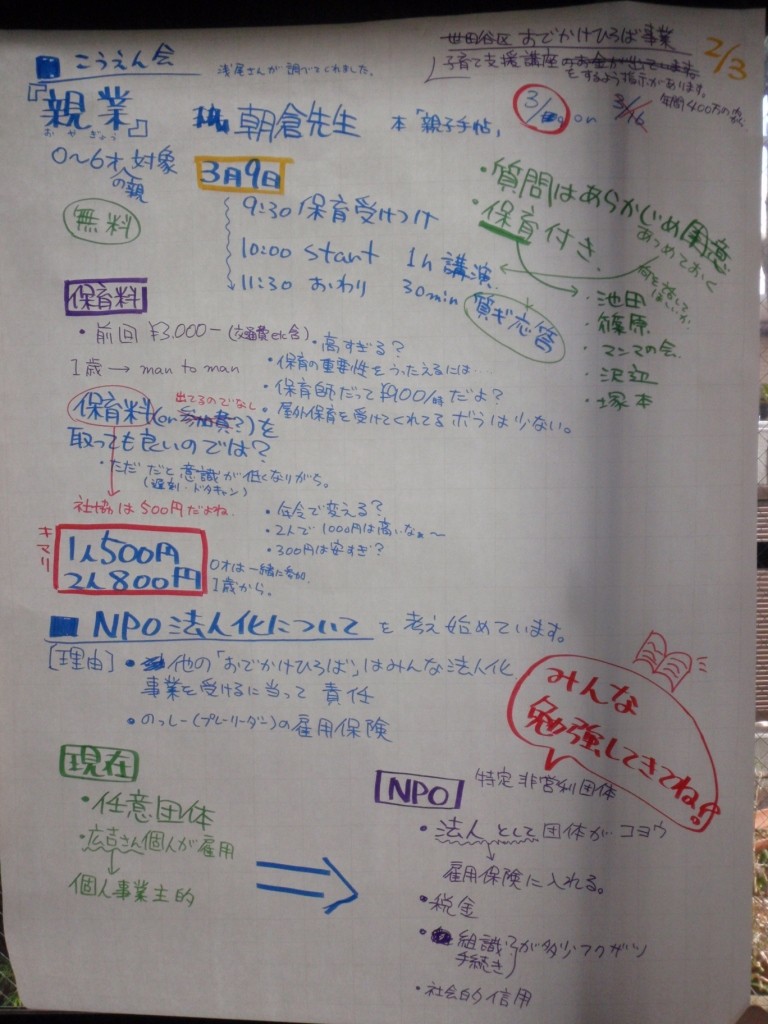 ■ こうえん会
浅尾さんが調べてくれました。
世田谷区 おでかけひろば事業
子育て支援講座のお金が出ています
をするよう指示があります。
年間400万の内
2/3
『親業』
おやぎょう
朝倉先生 本「親子手帖」
3/9 or 3/16
0〜6才対象
の親
無料
3月9日
9:30 保育受けつけ
10:00 start 1h 講演
11:30 おわり 30min 質ギ応答
・質問はあらかじめ用意
あつめておく
・保育付き.
何を話して
ほしいか.
・池田
・篠原
・マンマの会.
・沢辺
・塚本
保育料
・前回 ¥3.000-(交通費etc含)
・高すぎる?
1歳→ man to man
・保育の重要性をうったえるには…
・保育師だって¥900/時だよ?
出てるのでなし
保育料(or 参加費?)を
・屋外保育を受けてくれてるボラは少ない。
取っても良いのでは?
・ただ だと意識が低くなりがち。
(遅刻・ドタキャン)
社協は500円だよね.
・年令で変える?
・2人で1000円は高いなぁ〜
・300円は安すぎ?
キマリ
1人500円
2人800円
0才は一緒に参加.
1歳から.
■ NPO法人化について を考え始めています。
[理由]・他の「おでかけひろば」はみんな法人化
事業を受けるに当って 責任
・のっしー(プレーリーダー)の雇用保険
みんな
勉強してきてね!
現在
・任意団体
・広吉さん個人が雇用
個人事業主的
NPO 特定非営利団体
・法人として団体がコヨウ
雇用保険に入れる。
・税金
・組織
手続き
が多少フクザツ
・社会的信用